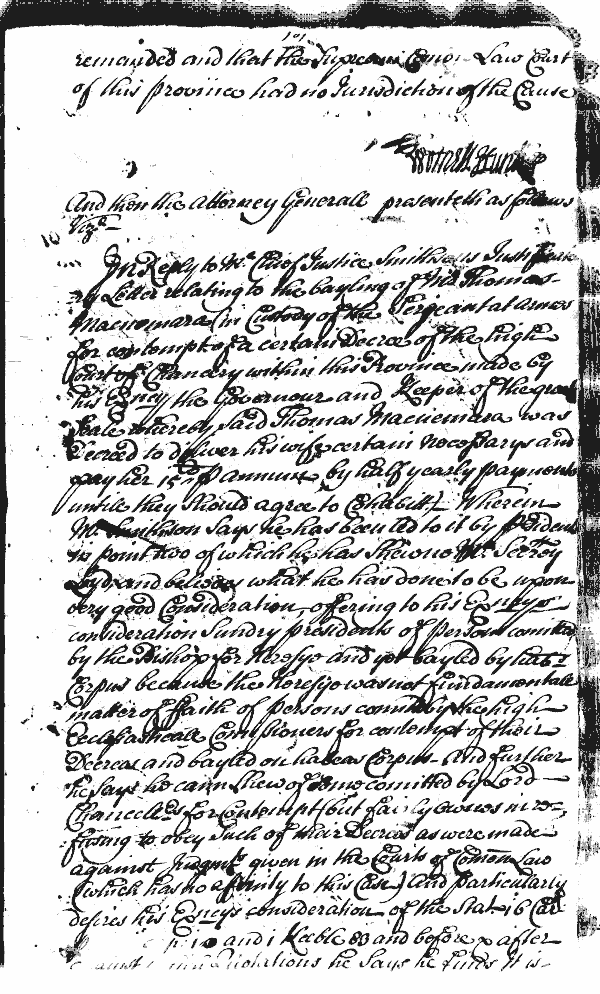 remanded and that the Supream Comon Law Court
of this Province had no Jurisdiction of the Cause
And then the Attorney Generall presenteth as follows
Vizt
In Reply to Mr Chief Justice Smithsons Justificato
ry Letter relating to the bayling of Mr Thomas
Macnemara (in Custody of the Serjeant at Armes
for contempt of a certain Decree of the high
Court of Chancery within this Province made by
his Excney the Governour and Keeper of the great
Seale whereby said Thomas Macnemara was
decreed to deliver his wife certain necessarys and
pay her 15 P annum by half yearly payments
untile they should agree to Cohabitt) Wherein
Mr Smithson says he has been led to it by presidents
in point two of which he has shewne Mr Secrey
Loyd, and believes what he has done to be upon
very good Consideration, offering to his Excneys
consideration Sundry presidents of persons comitted
by the Bishop for heresye and yet bayled by habs
Corpus because the heresye was not fundamentall
matter of faith of persons comitted by the high
Ecclesiasticall Comissioners for contempt of their
Decrees and bayled on habeas Corpus And further
he says he cann shew of some comitted by Lord
Chancellrs for Contempt (but fairly ownes in re
fusing to obey such of their Decrees as were made
against Judgmts given in the Courts of Comon Law
(which has no affinity to this Case) And particularly
desires his Excneys consideration of the Stat 16 Car
and 1 Keeble 83 and before & after
Quotations he says he finds it is